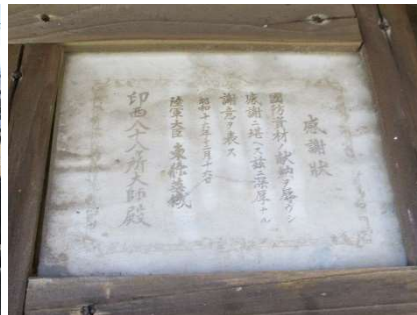 感謝状
国防資材ノ献納ヲ辱ウシ
感謝ニ堪ヘス茲ニ深厚ナル
謝意ヲ表ス
昭和十六年十二月十六日
陸軍大臣 東條英機
印西八十八所大師殿